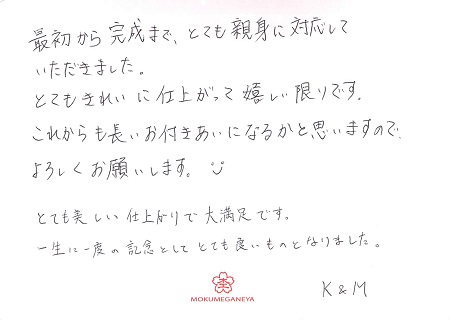 最初から完成まで、とても親身に対応して
いただきました。
とてもきれいに仕上がって嬉しい限りです。
これからも長いお付きあいになるかと思いますので、
よろしくお願いします。
とても美しい仕上がりで大満足です。
一生に一度の記念としてとても良いものとなりました。
MOKUMEGANEYA
K & M